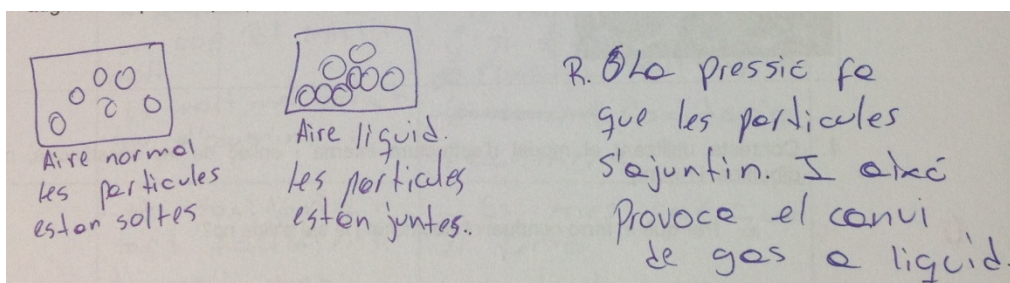 Aire normal
les particules
estan soltes
Aire liquid.
les particules
estan juntes.
R. La pressió fa
que les particules
s'ajuntin. I això
provoca el canvi
de gas a liquid.